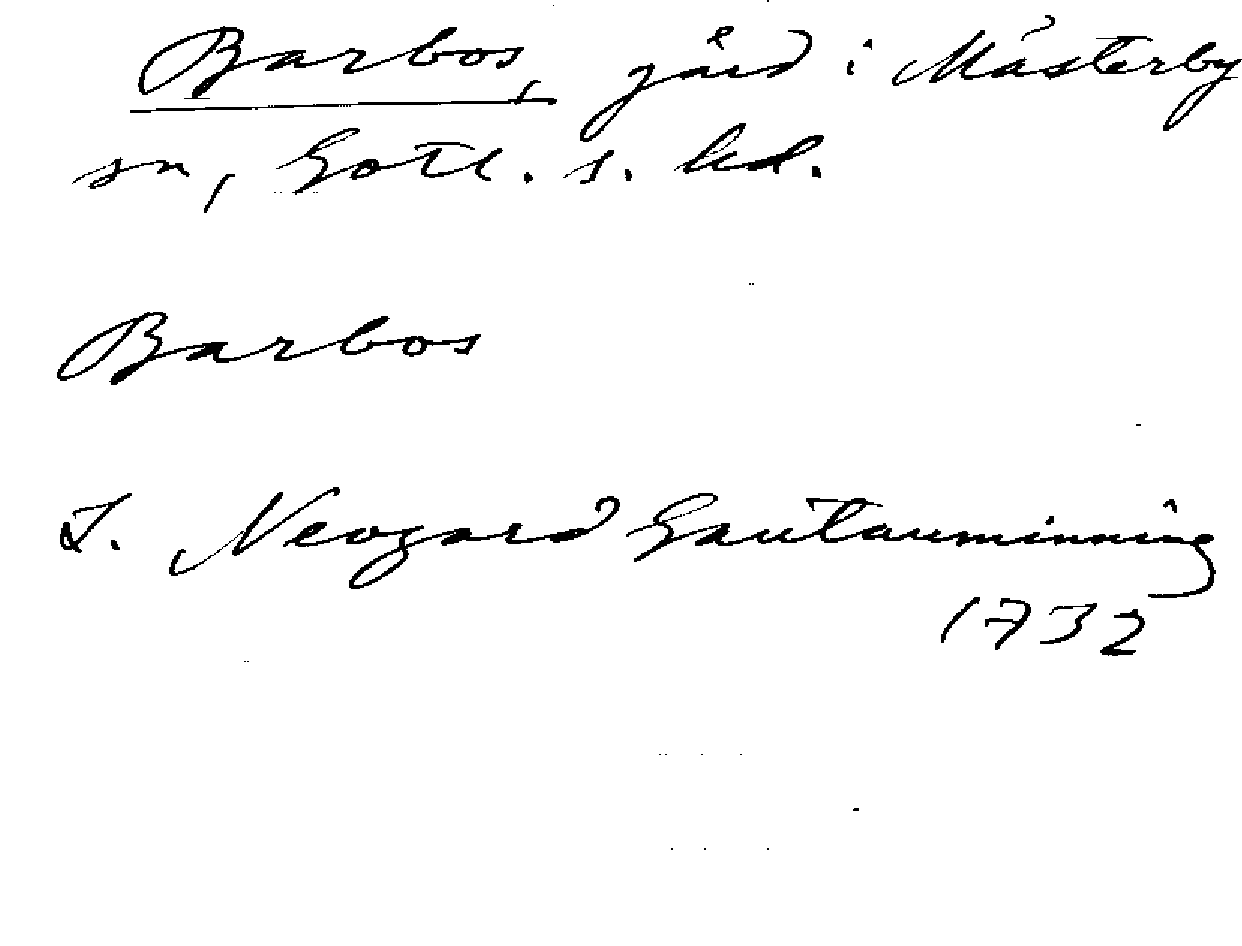 Barbos, gård i Mästerby
sn, Gotl. s. hd.
Barbos
I. Neogard Gautauminning
1732